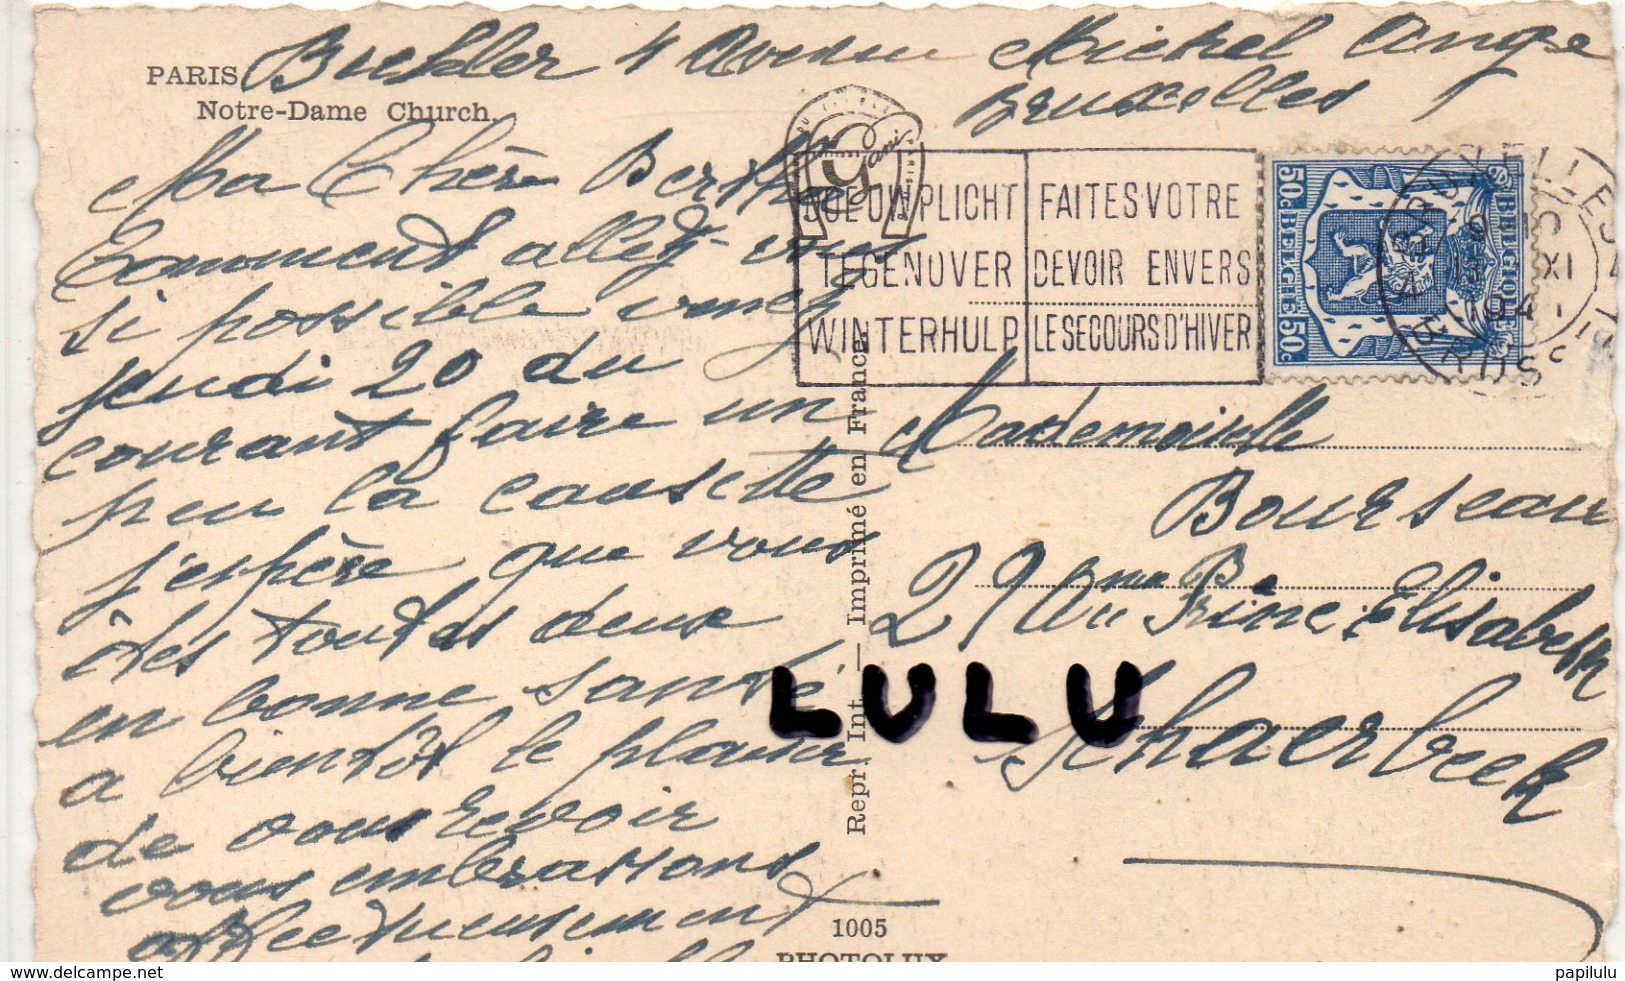 PARIS
Notre-Dame Church.
4 Avenue Michel Ange
Bruxelles
Ma Chère Bertha
Comment allez-vous
si possible venez
jeudi 20 du
courant faire un
peu la causette
j'espère que vous
êtes toutes deux
en bonne santé
a bientôt le plaisir
de vous revoir
vous embrassons
affectueusement
Gani
DOE UW PLICHT
TEGENOVER
WINTERHULP
FAITES VOTRE
DEVOIR ENVERS
LE SECOURS D'HIVER
50c BELGIQUE
BELGIE 50c
BRUXELLES
XI
1941
BRUSS
Mademoiselle
Bourseau
Elisabeth
Schaerbeek
Repr. Int. — Imprimé en France.
LULU
1005
PHOTOLUX
delcampe.net
papilulu